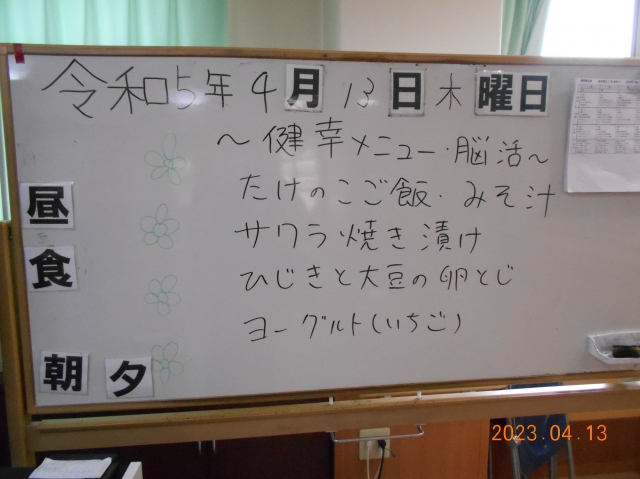 令和5年4月13日木曜日
～健幸メニュー・脳活～
たけのこご飯・みそ汁
サワラ焼き漬け
ひじきと大豆の卵とじ
ヨーグルト(いちご)
昼食
朝夕
2023.04.13